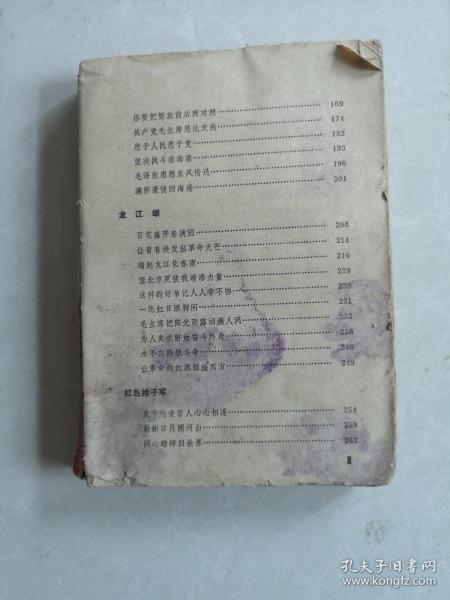 你要把解放前后两对照 169
共产党毛主席恩比天高 174
忠于人民忠于党 182
坚决战斗在海港 193
毛泽东思想东风传送 196
满怀豪情回海港 201
龙江颂
百花盛开春满园 208
让青春焕发出革命光芒 214
端起龙江化春雨 216
望北京更使我增添力量 220
这样的好书记人人夸不够 228
一轮红日照胸间 231
毛主席把阳光雨露洒满人间 233
为人类求解放奋斗终身 238
永不忘阶级斗争 246
让革命的红旗插遍四方 249
红色娘子军
天下的受苦人心心相连 254
新日月照河山 259
同心踏碎旧世界 263
孔夫子旧书网
www.kongfz.com